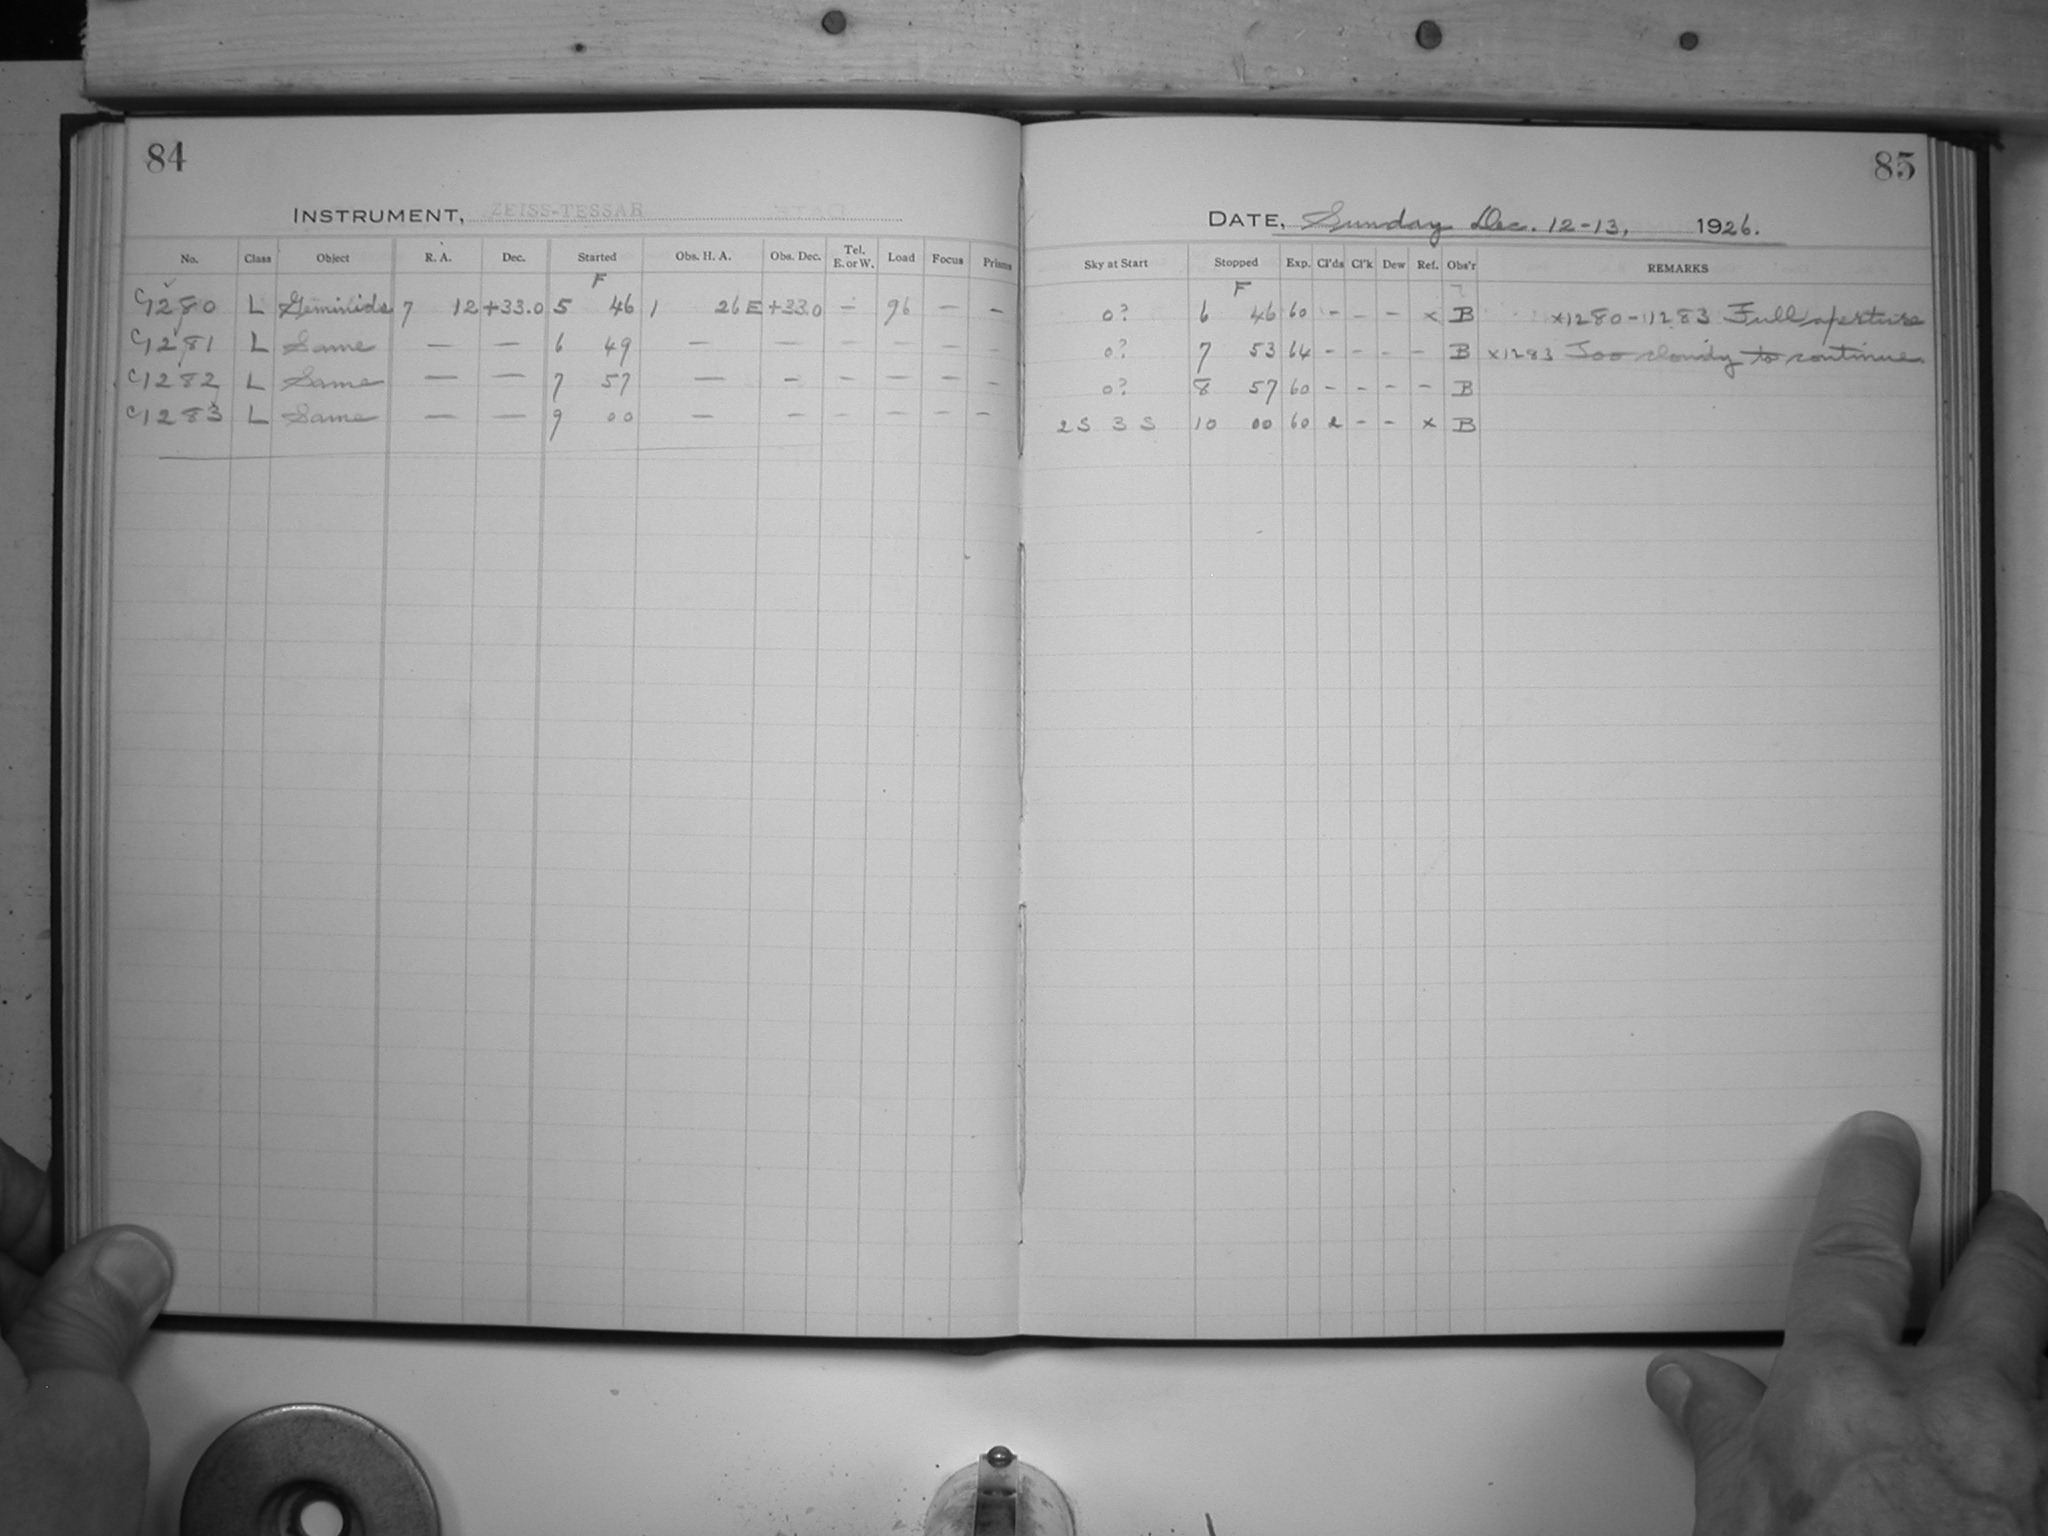 84
INSTRUMENT, ZEISS-TESSAR
No. Class Object R. A. Dec. Started Obs. H. A. Obs. Dec. Tel. E. or W. Load Focus Prisms
F
1280 L Geminids 7 12 +33.0 5 46 1 26 E +33.0 — 96 — —
1281 L Same — — 6 49 — — — — — —
1282 L Same — — 7 57 — — — — — —
1283 L Same — — 9 00 — — — — — —
85
DATE, Sunday Dec. 12-13, 1926.
Sky at Start Stopped Exp. Cl'ds Cl'k Dew Ref. Obs'r REMARKS
F
0? 6 46 60 - - - x B x1280-1283 Full aperture
0? 7 53 64 - - - - B x1283 Too cloudy to continue
0? 8 57 60 - - - - B
2 S 3 S 10 00 60 2 - - x B